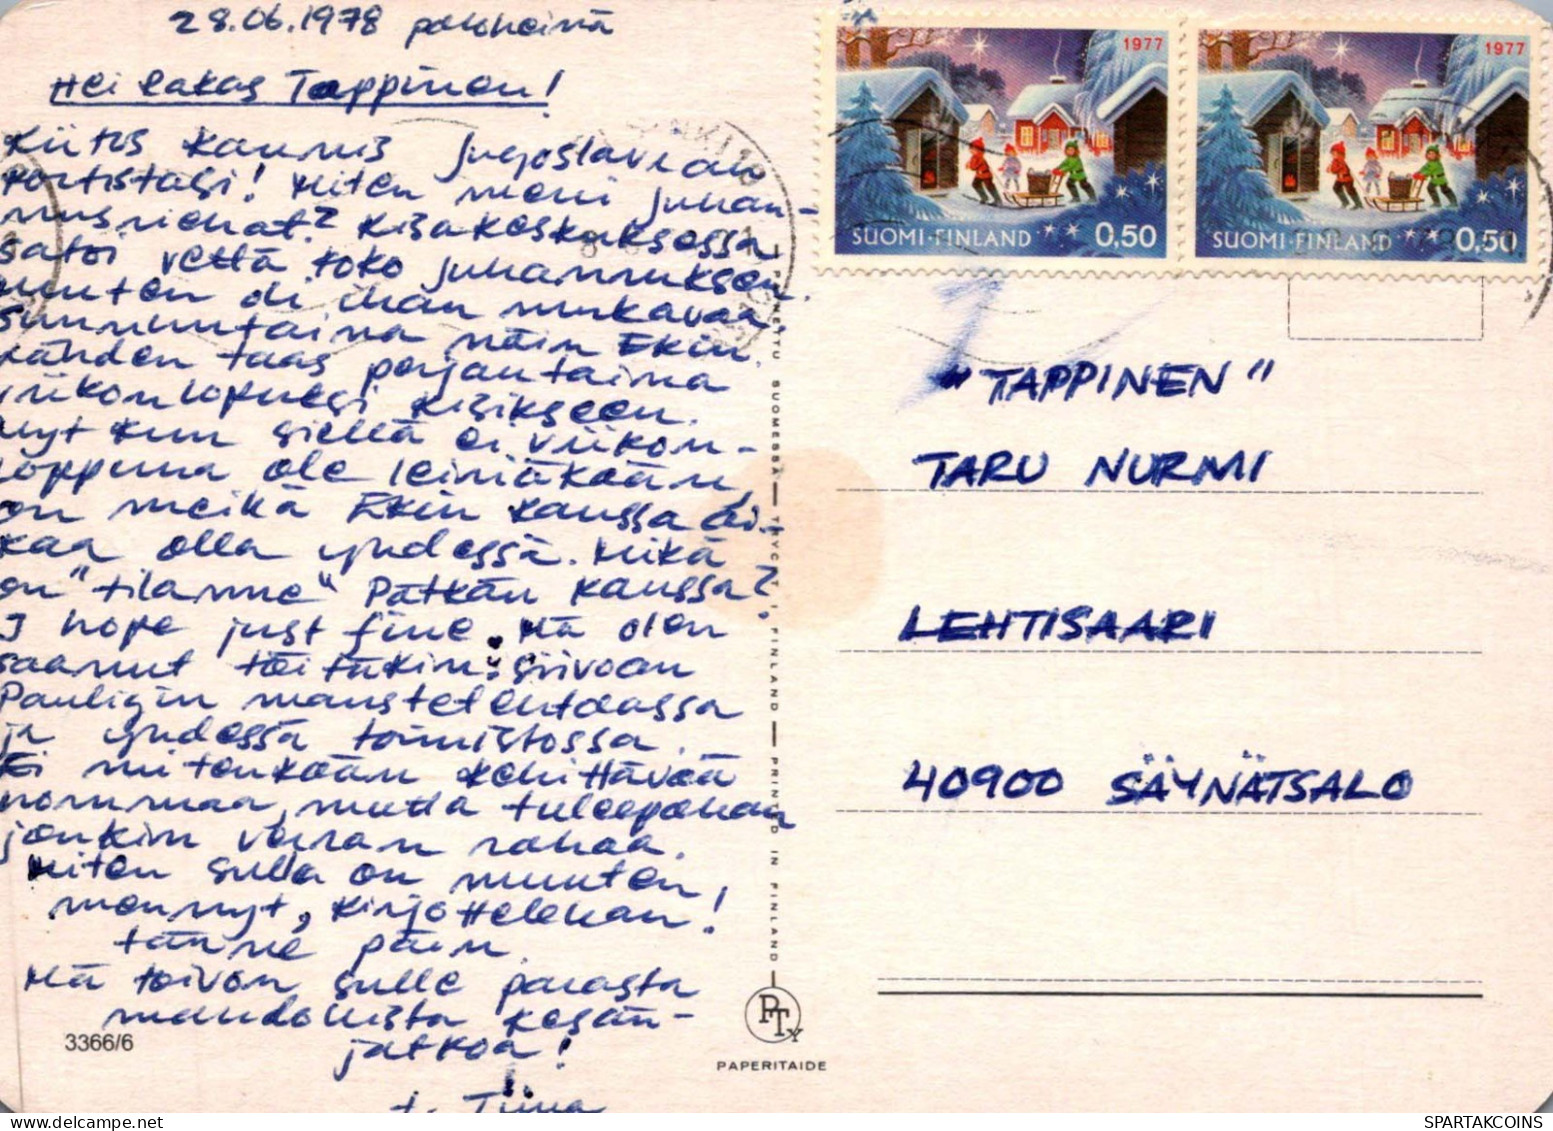 28.06.1978 paloheinä
Hei rakas Tappinen!
Kiitos kauniis Jugoslavian
kortistasi! Miten meni juhan-
nusriehat? Kisakeskuksessa
satoi vettä koko juhannuksen
muuten oli ihan mukavaa.
Sunnuntaina näin Ekin
lähden taas perjantaina
viikonlopuksi Kisikseen.
nyt kun siellä ei viikon-
loppuna ole leiriäkään
on meikä Ekin kanssa ai-
kaa olla yhdessä. Mikä
on "tilanne" Pätkän kanssa?
I hope just fine. Mä olen
saanut töitäkin: siivoan
Pauligin maustetehtaassa
ja yhdessä toimistossa.
Ei mitenkään kehittävää
hommaa, mutta tuleepahan
jonkin verran rahaa.
Miten sulla on muuten
mennyt, kirjottelehan!
tänne päin.
Mä toivon sulle parasta
mahdollista kesän-
jatkoa!
t. Tiina
3366/6
PAINETTU SUOMESSA — TRYCKT I FINLAND — PRINTED IN FINLAND
PTY
PAPERITAIDE
1977
SUOMI-FINLAND 0,50
1977
SUOMI-FINLAND 0,50
"TAPPINEN"
TARU NURMI
LEHTISAARI
40900 SÄYNÄTSALO
SPARTAKCOINS